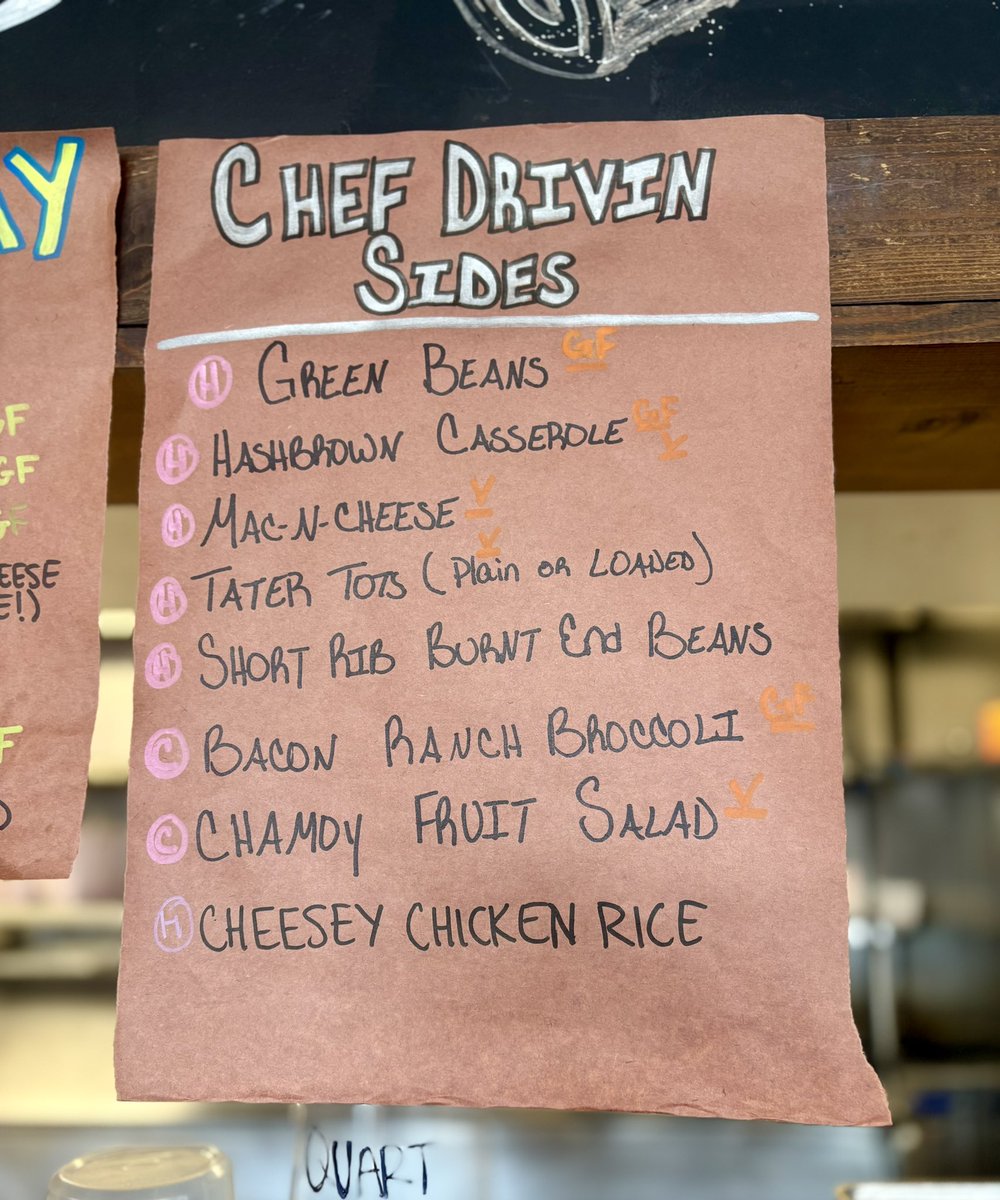 AY
GF
GF
GF
EESE
E!)
F
CHEF DRIVIN
SIDES
H GREEN BEANS GF
H HASHBROWN CASSEROLE GF V
H MAC-N-CHEESE V
H TATER TOTS (Plain OR LOADED) V
H SHORT RIB BURNT End BEANS
C BACON RANCH BROCCOLI GF
C CHAMOY FRUIT SALAD V
H CHEESEY CHICKEN RICE
QUART